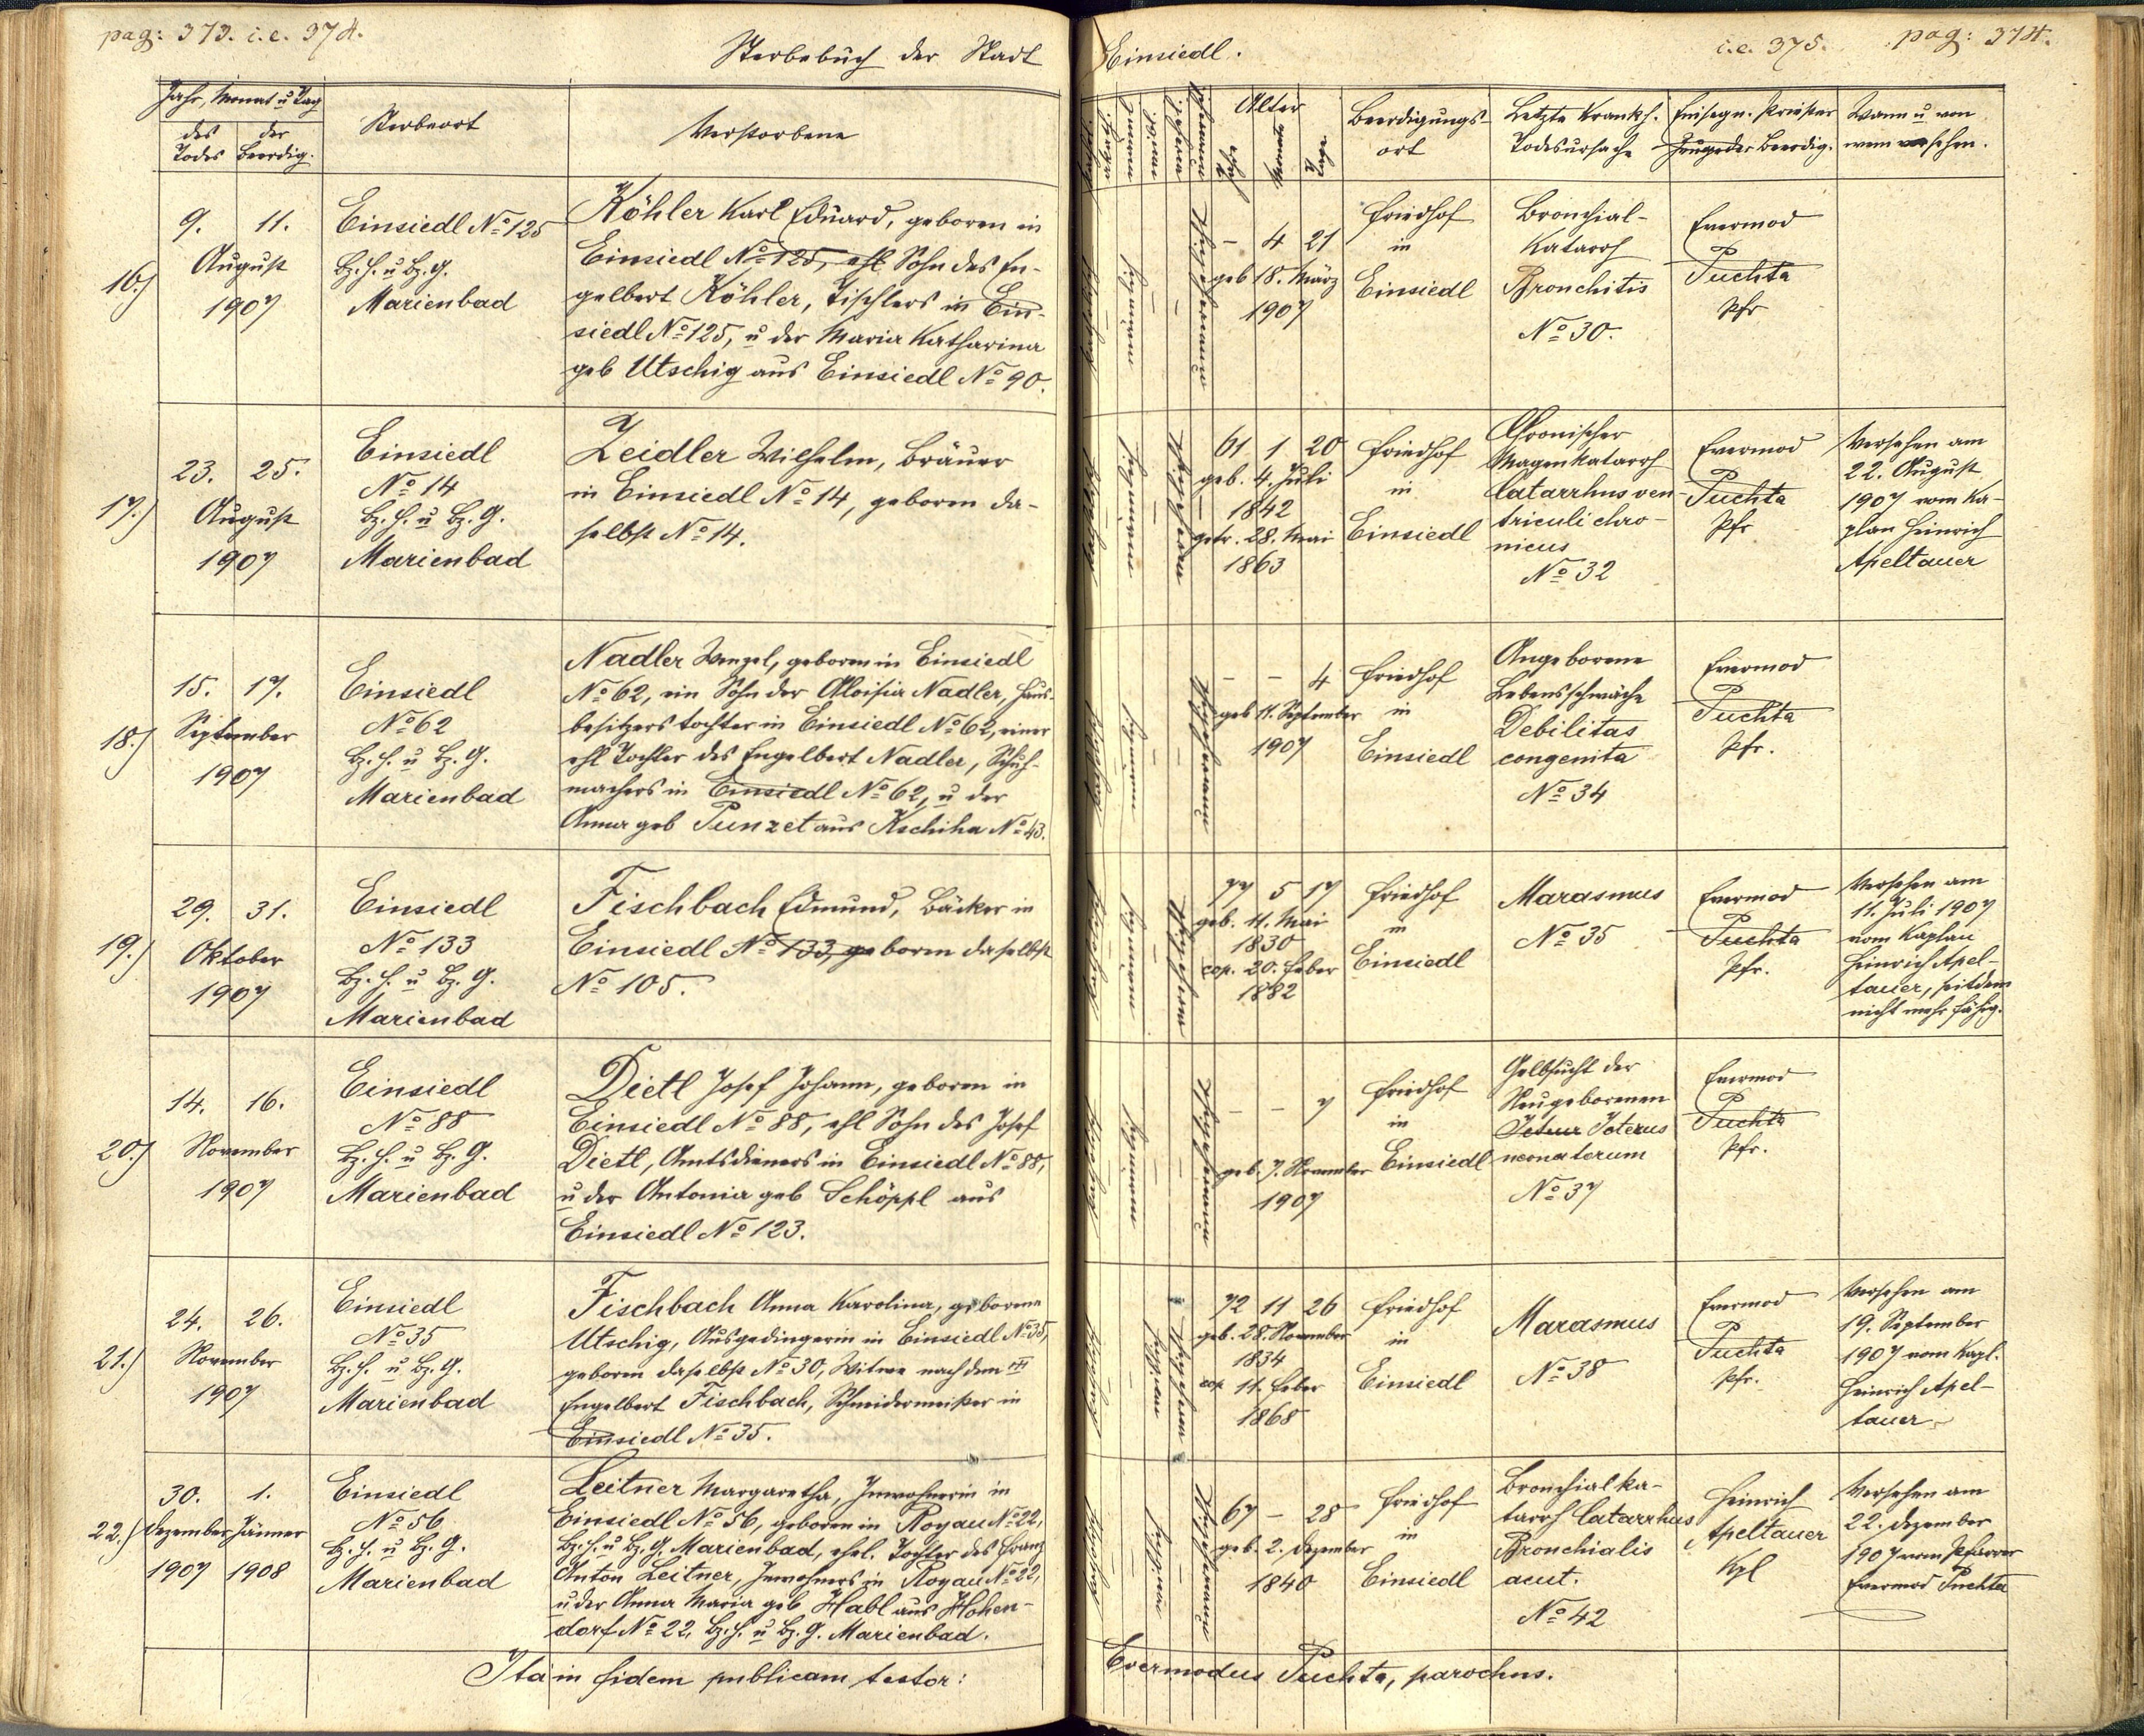 pag: 373. i.e. 374.
Sterbebuch der Stadt Einsiedl.
i.e. 375. pag: 374.
Jahr, Monat u Tag
des Todes
der Beerdig.
Sterbeort
Verstorbene
Alter
Jahre
Monate
Tage
Beerdigungs-
ort
Letzte Krankh.
Todesursache
Einsegn. Priester
Zeuge der Beerdig.
Wann u von
wem versehen.
16.)
9. 11.
August
1907
Einsiedl No 125
Bz. H. u Bz. G.
Marienbad
Köhler Karl Eduard, geboren in
Einsiedl No 125, ehl Sohn des En-
gelbert Köhler, Tischlers in Ein-
siedl No 125, u der Maria Katharina
geb Utschig aus Einsiedl No 90.
katholisch
männlich
unehelich
- 4 21
geb 18. März
1907
Friedhof
in
Einsiedl
Bronchial-
Katarrh
Bronchitis
No 30.
Evermod
Puchta
Pfr
17.)
23. 25.
August
1907
Einsiedl
No 14
Bz. H. u Bz. G.
Marienbad
Zeidler Wilhelm, Bräuer
in Einsiedl No 14, geboren da-
selbst No 14.
61 1 20
geb. 4. Juli
1842
getr. 28. Mai
1863
Friedhof
in
Einsiedl
Chronischer
Magenkatarrh
Catarrhus ven-
triculi chro-
nicus
No 32
Evermod
Puchta
Pfr
Versehen am
22. August
1907 vom Ka-
plan Heinrich
Apeltauer
18.)
15. 17.
September
1907
Einsiedl
No 62
Bz. H. u Bz. G.
Marienbad
Nadler Wenzel, geboren in Einsiedl
No 62, ein Sohn der Aloisia Nadler, Haus-
besitzers tochter in Einsiedl No 62, einer
ehl Tochter des Engelbert Nadler, Schuh-
machers in Einsiedl No 62, u der
Anna geb Punzet aus Kschiha No 43.
- - 4
geb 11. September
1907
Friedhof
in
Einsiedl
Angeborene
Lebensschwäche
Debilitas
congenita
No 34
Evermod
Puchta
Pfr.
19.)
29. 31.
Oktober
1907
Einsiedl
No 133
Bz. H. u Bz. G.
Marienbad
Fischbach Edmund, Bäcker in
Einsiedl No 133, geboren daselbst
No 105.
77 5 17
geb. 11. Mai
1830
cop. 20. Feber
1882
Friedhof
in
Einsiedl
Marasmus
No 35
Evermod
Puchta
Pfr.
Versehen am
11. Juli 1907
vom Kaplan
Heinrich Apel-
tauer, seitdem
nicht mehr fähig.
20.)
14. 16.
November
1907
Einsiedl
No 88
Bz. H. u Bz. G.
Marienbad
Dietl Josef Johann, geboren in
Einsiedl No 88, ehl Sohn des Josef
Dietl, Amtsdieners in Einsiedl No 88,
u der Antonia geb Schöppl aus
Einsiedl No 123.
- - 7
geb. 7. November
1907
Friedhof
in
Einsiedl
Gelbsucht der
Neugeborenen
Icterus
neonatorum
No 37
Evermod
Puchta
Pfr.
21.)
24. 26.
November
1907
Einsiedl
No 35
Bz. H. u Bz. G.
Marienbad
Fischbach Anna Karolina, geborene
Utschig, Ausgedingerin in Einsiedl No 35,
geboren daselbst No 30, Witwe nach dem
Engelbert Fischbach, Schneidermeister in
Einsiedl No 35.
72 11 26
geb. 28. November
1834
cop 11. Feber
1868
Friedhof
in
Einsiedl
Marasmus
No 38
Evermod
Puchta
Pfr.
Versehen am
19. September
1907 vom Kapl.
Heinrich Apel-
tauer
22.)
30. 1.
Dezember Jänner
1907 1908
Einsiedl
No 56
Bz. H. u Bz. G.
Marienbad
Leitner Margaretha, Inwohnerin in
Einsiedl No 56, geboren in Royau No 22,
Bz. H. u Bz. G. Marienbad, ehel. Tochter des Franz
Anton Leitner, Inwohners in Royau No 22,
u der Anna Maria geb Habl aus Hohen-
dorf No 22, Bz. H. u Bz. G. Marienbad.
67 - 28
geb. 2. Dezember
1840
Friedhof
in
Einsiedl
Bronchialka-
tarrh Catarrhus
Bronchialis
acut.
No 42
Heinrich
Apeltauer
Kpl
Versehen am
22. Dezember
1907 vom Pfarrer
Evermod Puchta
Ita in fidem publicam testor: Evermodus Puchta, parochus.